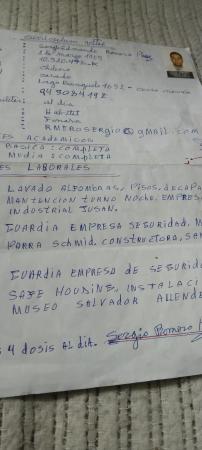 Curriculum vitae
: Sergio Armando Romero
: de marzo 1959
: Chileno
: casado
: 943084192
: al dia
: Habitat
: Fonasa
: RMEROSERGIO@gmail.com
ES ACADEMICOS
BASICA: COMPLETA
MEDIA: COMPLETA
ES LABORALES
LAVADO ALFOMBRAS, PISOS, DECAPA
MANTENCION TURNO NOCHE, EMPRES
INDUSTRIAL SUSAN.
GUARDIA EMPRESA SEGURIDAD, M
PARRA SCHMID, CONSTRUCTORA, SAN
GUARDIA EMPRESA DE SEGURIDA
SAFE HOUSING, INSTALACI
MUSEO SALVADOR ALLENDE
4 DOSIS AL DIA. Sergio Romero